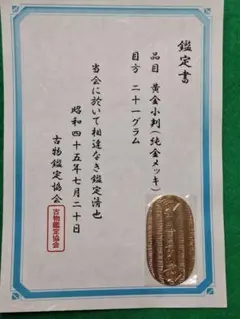 鑑定書
品目 黄金小判(純金メッキ)
目方 二十一グラム
当会に於いて相違なき鑑定済也
昭和四十五年七月二十日
古物鑑定協会
古物鑑定協会